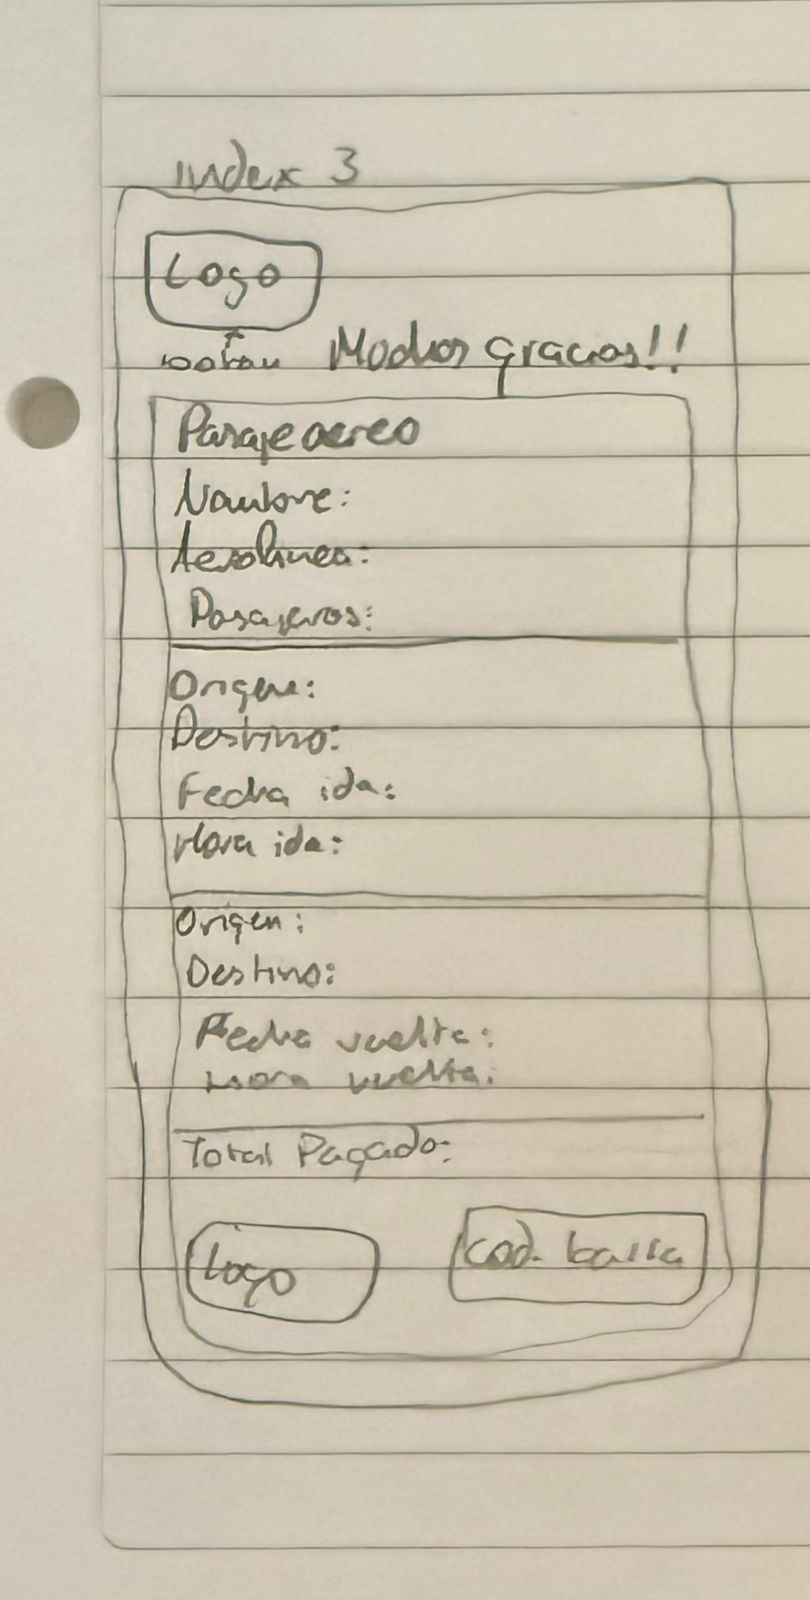 index 3
Logo
boton Muchas gracias!!
Pasaje aereo
Nombre:
Aerolinea:
Pasajeros:
Origen:
Destino:
Fecha ida:
Hora ida:
Origen:
Destino:
Fecha vuelta:
Hora vuelta:
Total Pagado:
Logo cod. barra